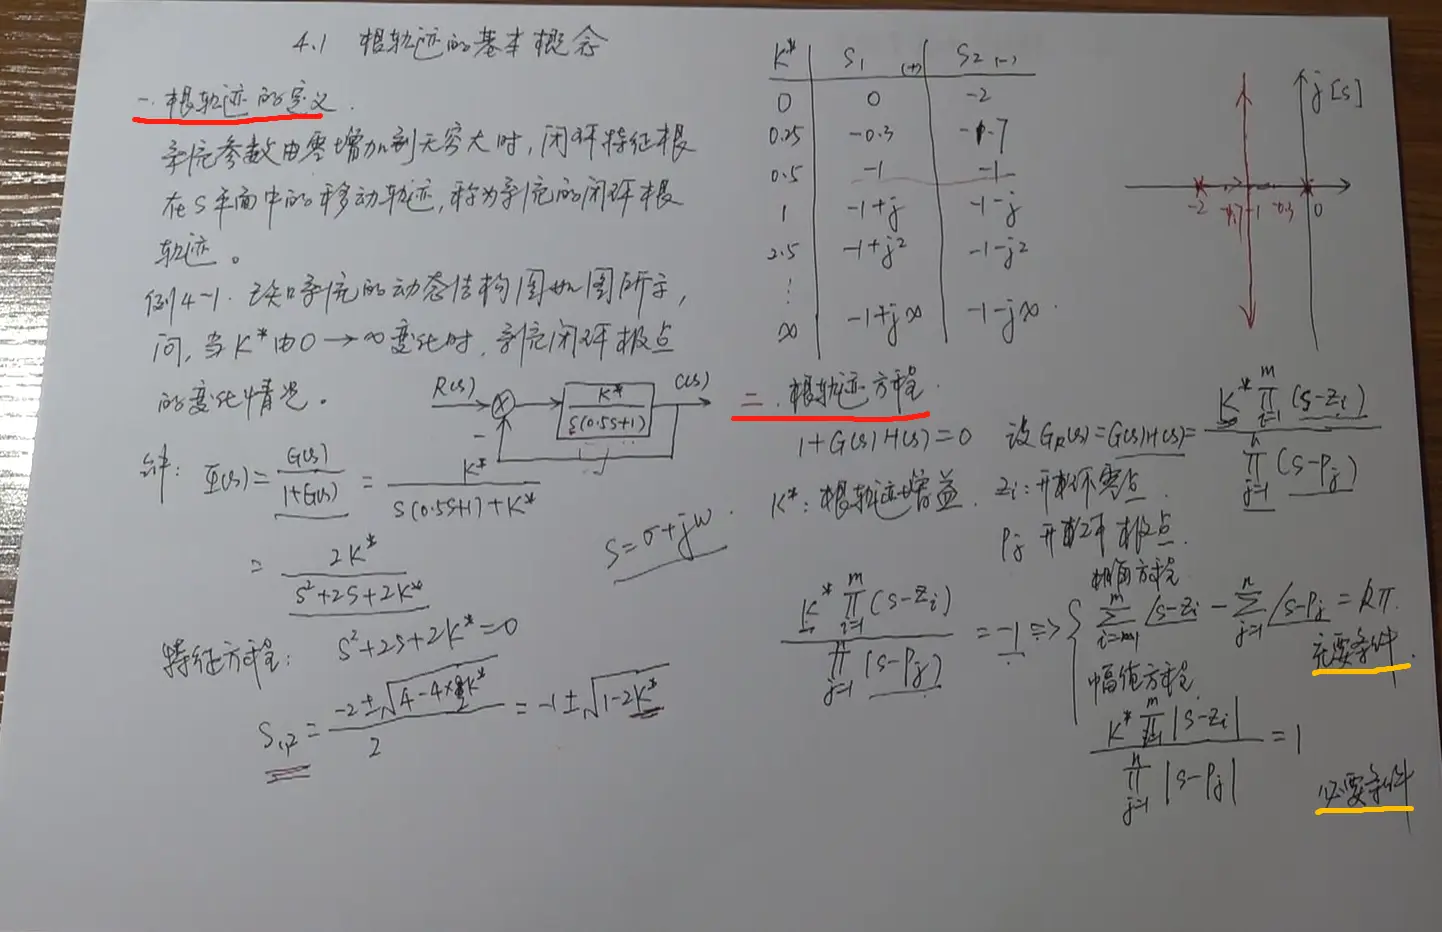 4.1 根轨迹的基本概念
一.根轨迹的定义.
系统参数由零增加到无穷大时,闭环特征根
在S平面中的移动轨迹,称为系统的闭环根
轨迹。
例4-1. 已知系统的动态结构图如图所示,
问,当K*由0→∞变化时,系统闭环极点
的变化情况。
R(s) - K* / S(0.5S+1) C(s)
解: Φ(s) = G(s) / 1+G(s) = K* / S(0.5S+1)+K*
= 2K* / S²+2S+2K*
S=σ+jω.
特征方程: S²+2S+2K*=0
S₁,₂ = -2±√4-4×2K* / 2 = -1±√1-2K*
K* S₁ (+) S₂ (-)
0 0 -2
0.25 -0.3 -1.7
0.5 -1 -1
1 -1+j -1-j
2.5 -1+j2 -1-j2
⋮
∞ -1+j∞ -1-j∞.
j [S]
-2 -1.7 -1 -0.3 0
二.根轨迹方程.
1+G(s)H(s)=0 设Gₖ(s)=G(s)H(s)= K* ∏ᵢ₌₁ᵐ (S-Zᵢ) / ∏ⱼ₌₁ⁿ (S-Pⱼ)
K*:根轨迹增益. Zᵢ:开环零点.
Pⱼ 开环极点.
K* ∏ᵢ₌₁ᵐ (S-Zᵢ) / ∏ⱼ₌₁ⁿ (S-Pⱼ) = -1 ⇒
相角方程
∑ᵢ₌₁ᵐ ∠S-Zᵢ - ∑ⱼ₌₁ⁿ ∠S-Pⱼ = kπ.
充要条件.
幅值方程
K* ∏ᵢ₌₁ᵐ |S-Zᵢ| / ∏ⱼ₌₁ⁿ |S-Pⱼ| = 1
必要条件